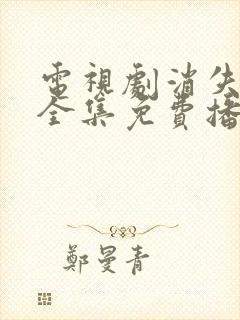 電視劇消失
全集免費播
鄭曼青